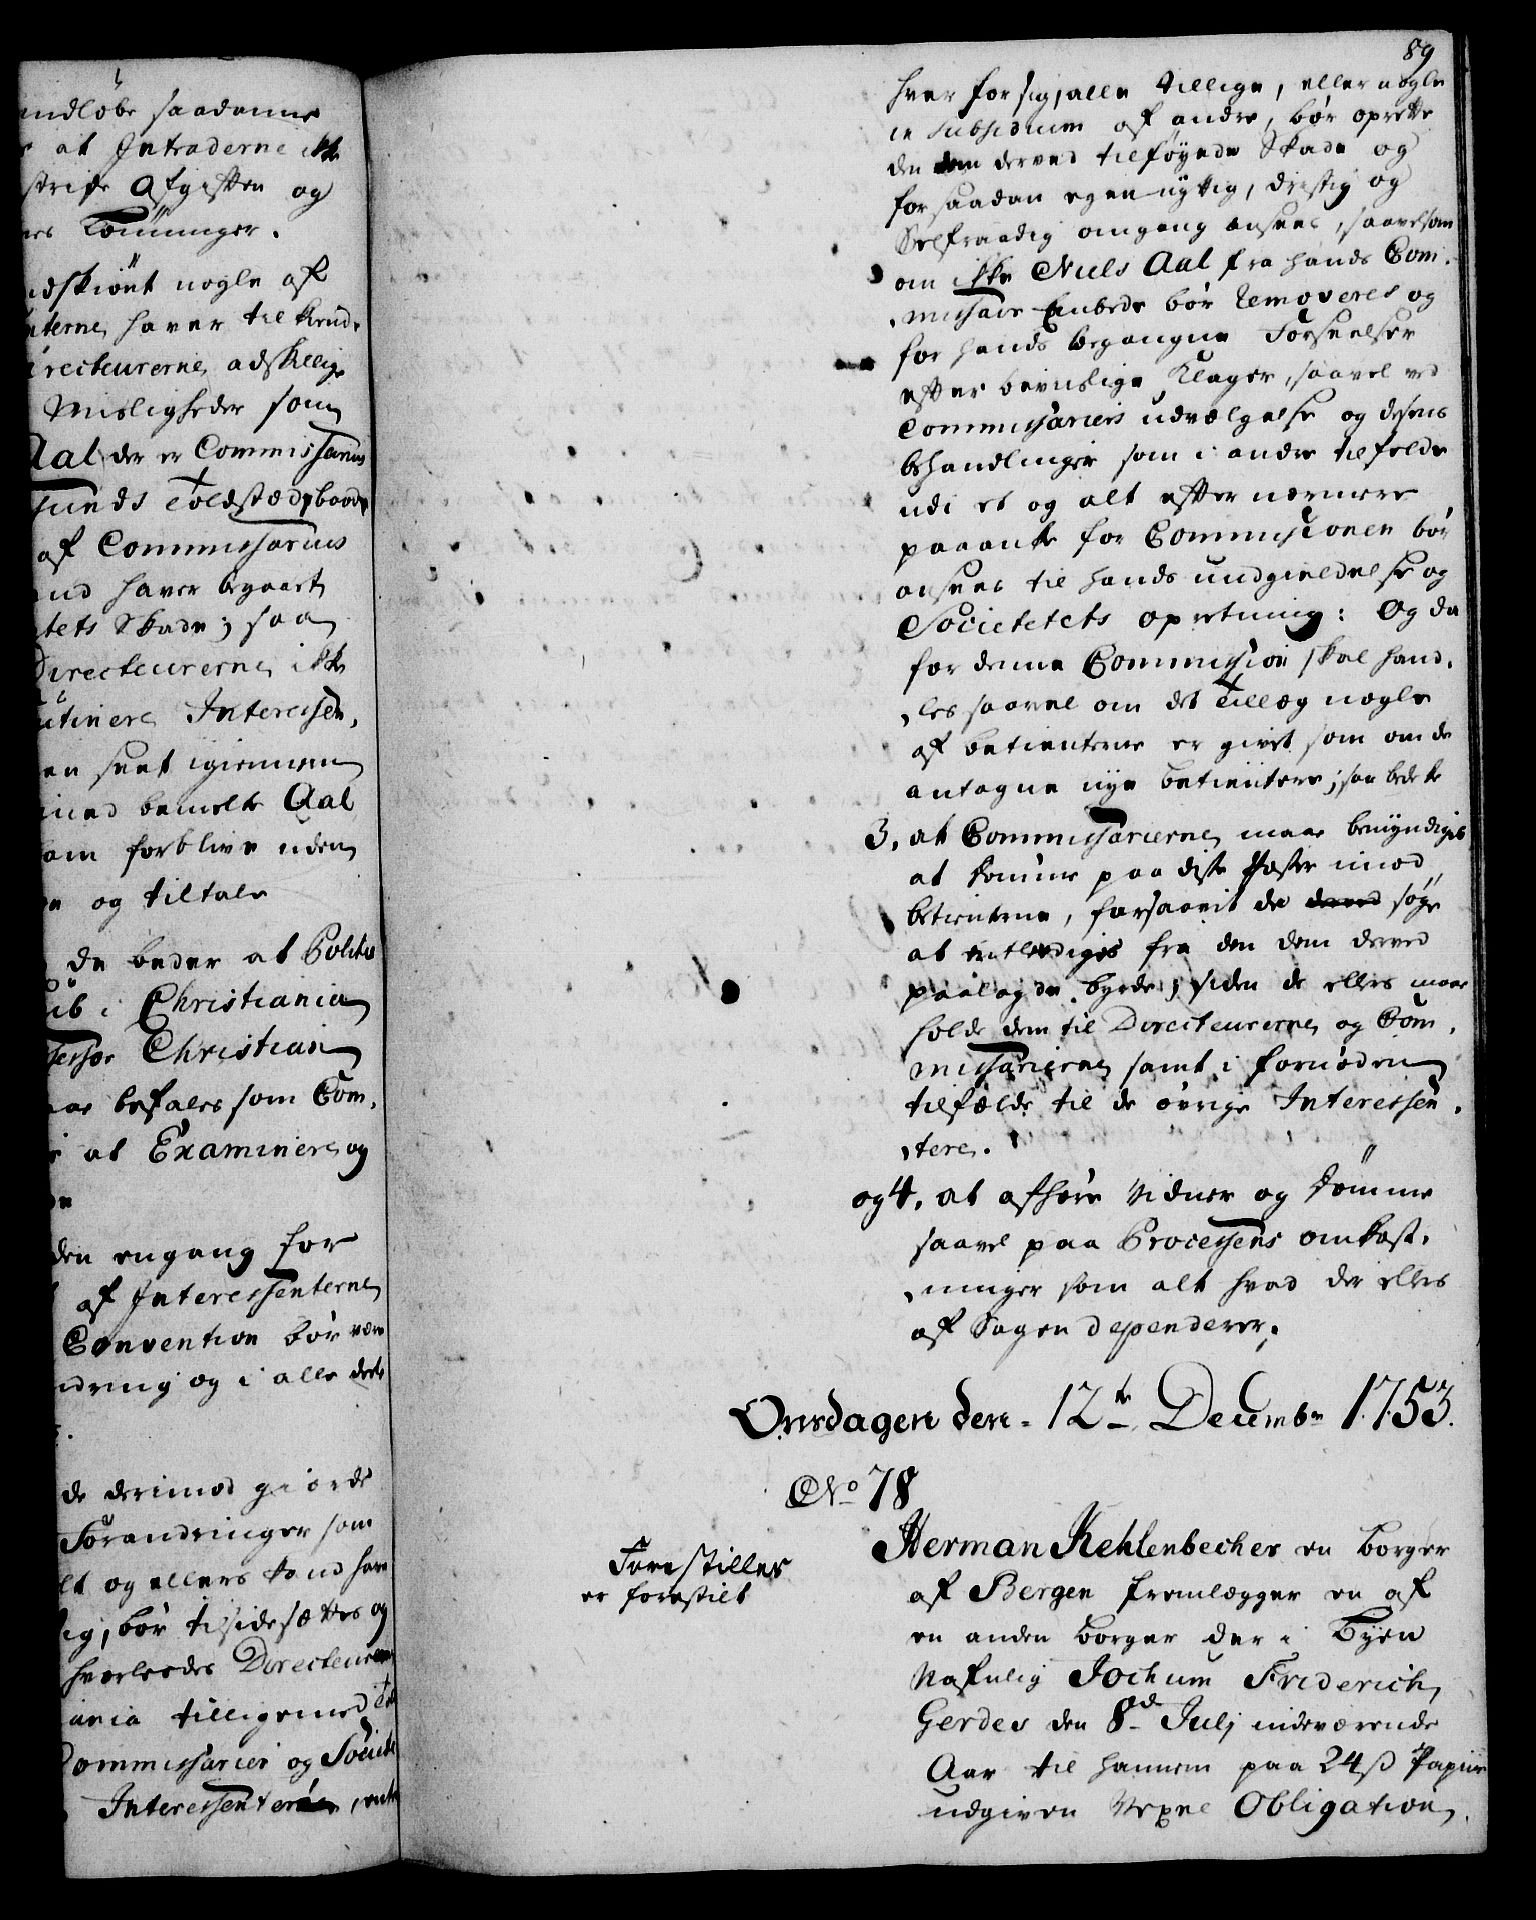 indløbe saadanne
at Intraderne ikke
stride Afgiften og
nes Comminger.
idskiønt nogle af
nterne haver til kiend
irecteurerne adskillige
Misligheder som
Aal der er Commissarius
sunds Toldstæd, baade
af Commissarius
and haver begaaet
tets Skade; saa
Directeurerne ikke
utinere Interessen,
en seet igiennem
med bemelte Aal
om forblive uden
og tiltale
de beder at Politie
i Christiania
sessor Christian
befales som Com,
at Examinere og
den engang for
af Interessenterne
Convention bør være
ndring og i alle deele
de derimod giorde
Forandringer som
lt og ellers
ig, bør tilsidesættes og
hvorledes Directeurerne
ania tilligemed
Commissarier og Societ
Interessenterne, enten
89
hver for sig, alle tillige, eller nogle
in subsidium af andre, bør oprette
den dem derved tilføyede Skade og
for saadan egennyttig, dristig og
Selfraadig omgang ansees, saavelsom
om ikke Niels Aal fra hands Com,
,missair Embede bør removeres og
for hands begangne Forseelser
efter beviislige Klager, saavel ved
Commissariers udvælgelse og desens
behandlinger som i andre tilfælde
udi et og alt efter nærmere
paaanke for Commissionen bør
ansees til hands undgieldelse og
Societetets opretning: Og da
for denne Commission skal hand,
,les saavel om det Tillæg nogle
af betienterne er givet som om de
antagne nye betientere; saa bede de
3, at Commissarierne maae bemyndiges
at komme paa disse Poster imod
betienterne, forsaavit de derved søge
at entlediges fra den dem derved
paalagde byrde; siden de ellers maae
holde dem til Directeurerne og Com,
missarierne samt i fornøden
tilfælde til de øvrige Interessen,
,tere.
og 4, at afhøre Vidner og dømme
saavel paa Processens omkost,
,ninger som alt hvad der ellers
af Sagen dependerer.
Onsdagen den 12te Decembr 1753.
No 78
Forestilles
er forestilt
Herman Kehlenbecher en borger
af Bergen fremlægger en af
en anden borger der i Byen
Nafnlig Jochum Friderich
Gerdes den 8de Julj indeværende
Aar til hannem paa 24 ß Papiir
udgiven Vexel Obligation,